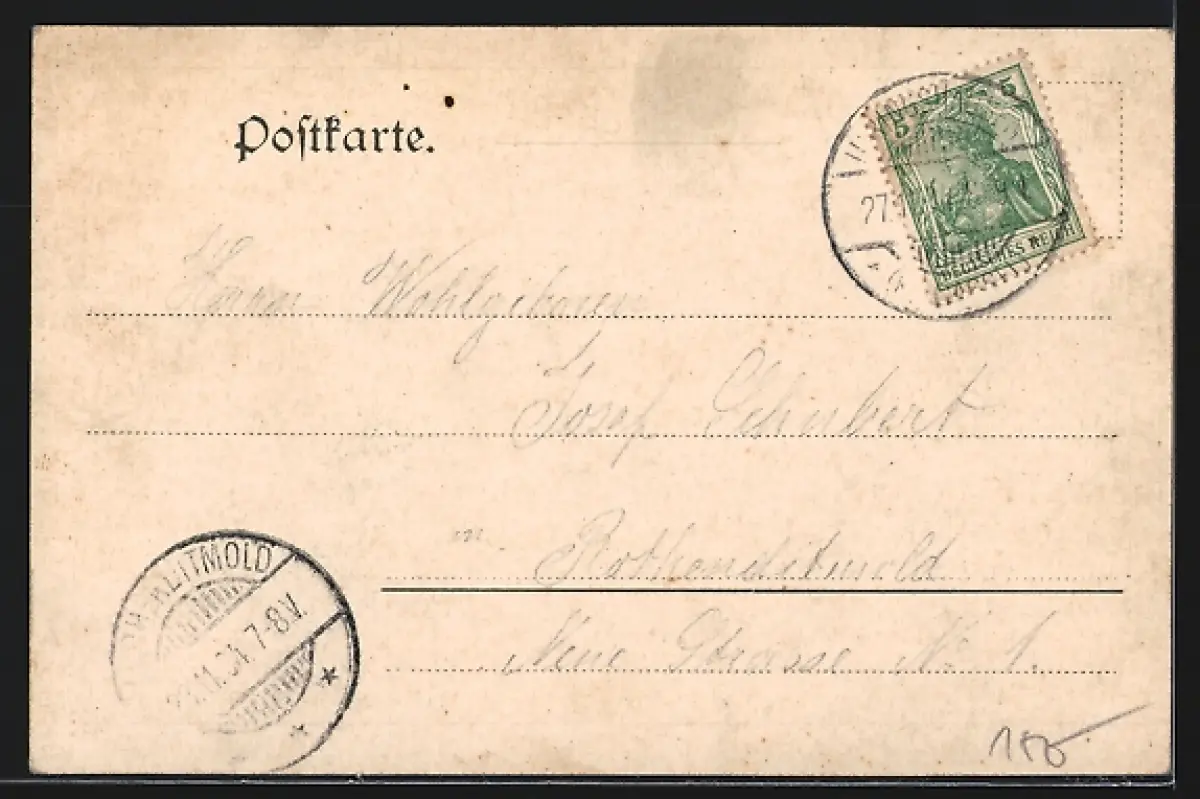 Postkarte.
5 5
DEUTSCHES REICH
27
Herrn Wohlgeboren
Josef Schubert
in Rothenditmold
Neue Strasse No 1.
11.04. 7-8V.